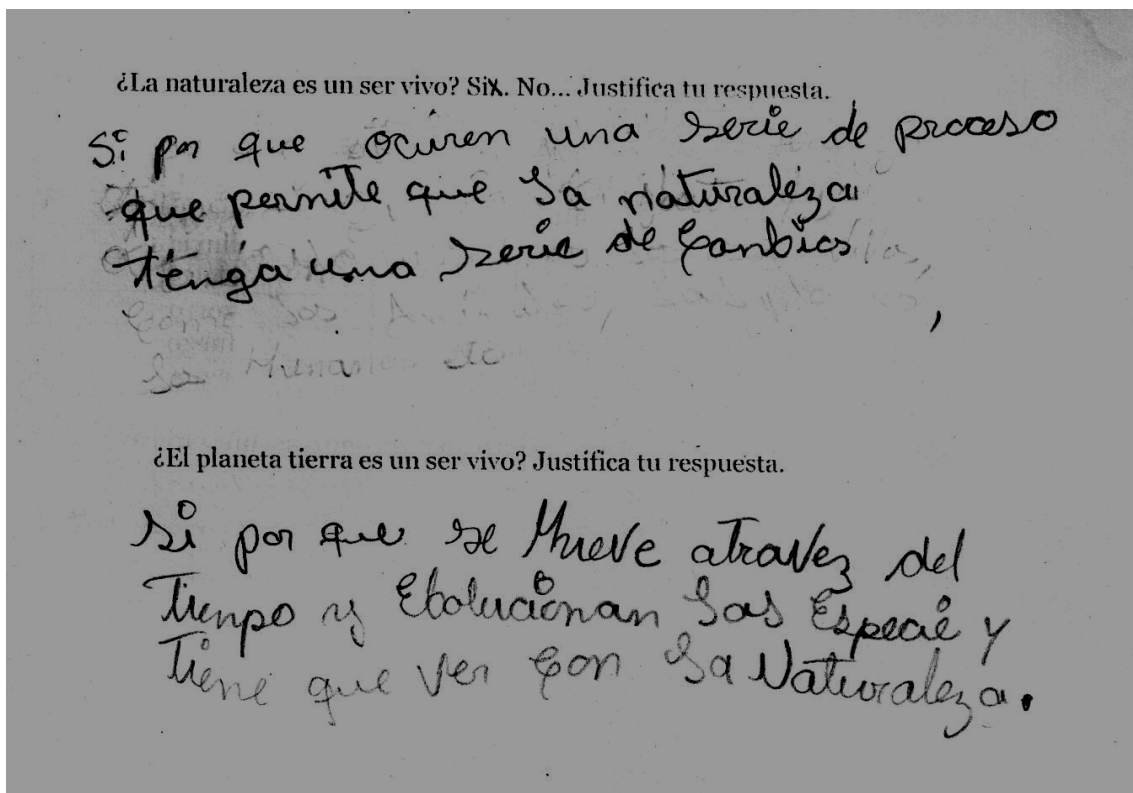 ¿La naturaleza es un ser vivo? Six. No... Justifica tu respuesta.
Si por que ocurren una serie de proceso
que permite que la naturaleza
tenga una serie de canbios
como los
los Humanos etc
¿El planeta tierra es un ser vivo? Justifica tu respuesta.
si por que se mueve atravez del
Tienpo y Ebolucionan las Especie y
Tiene que ver con la Naturaleza.